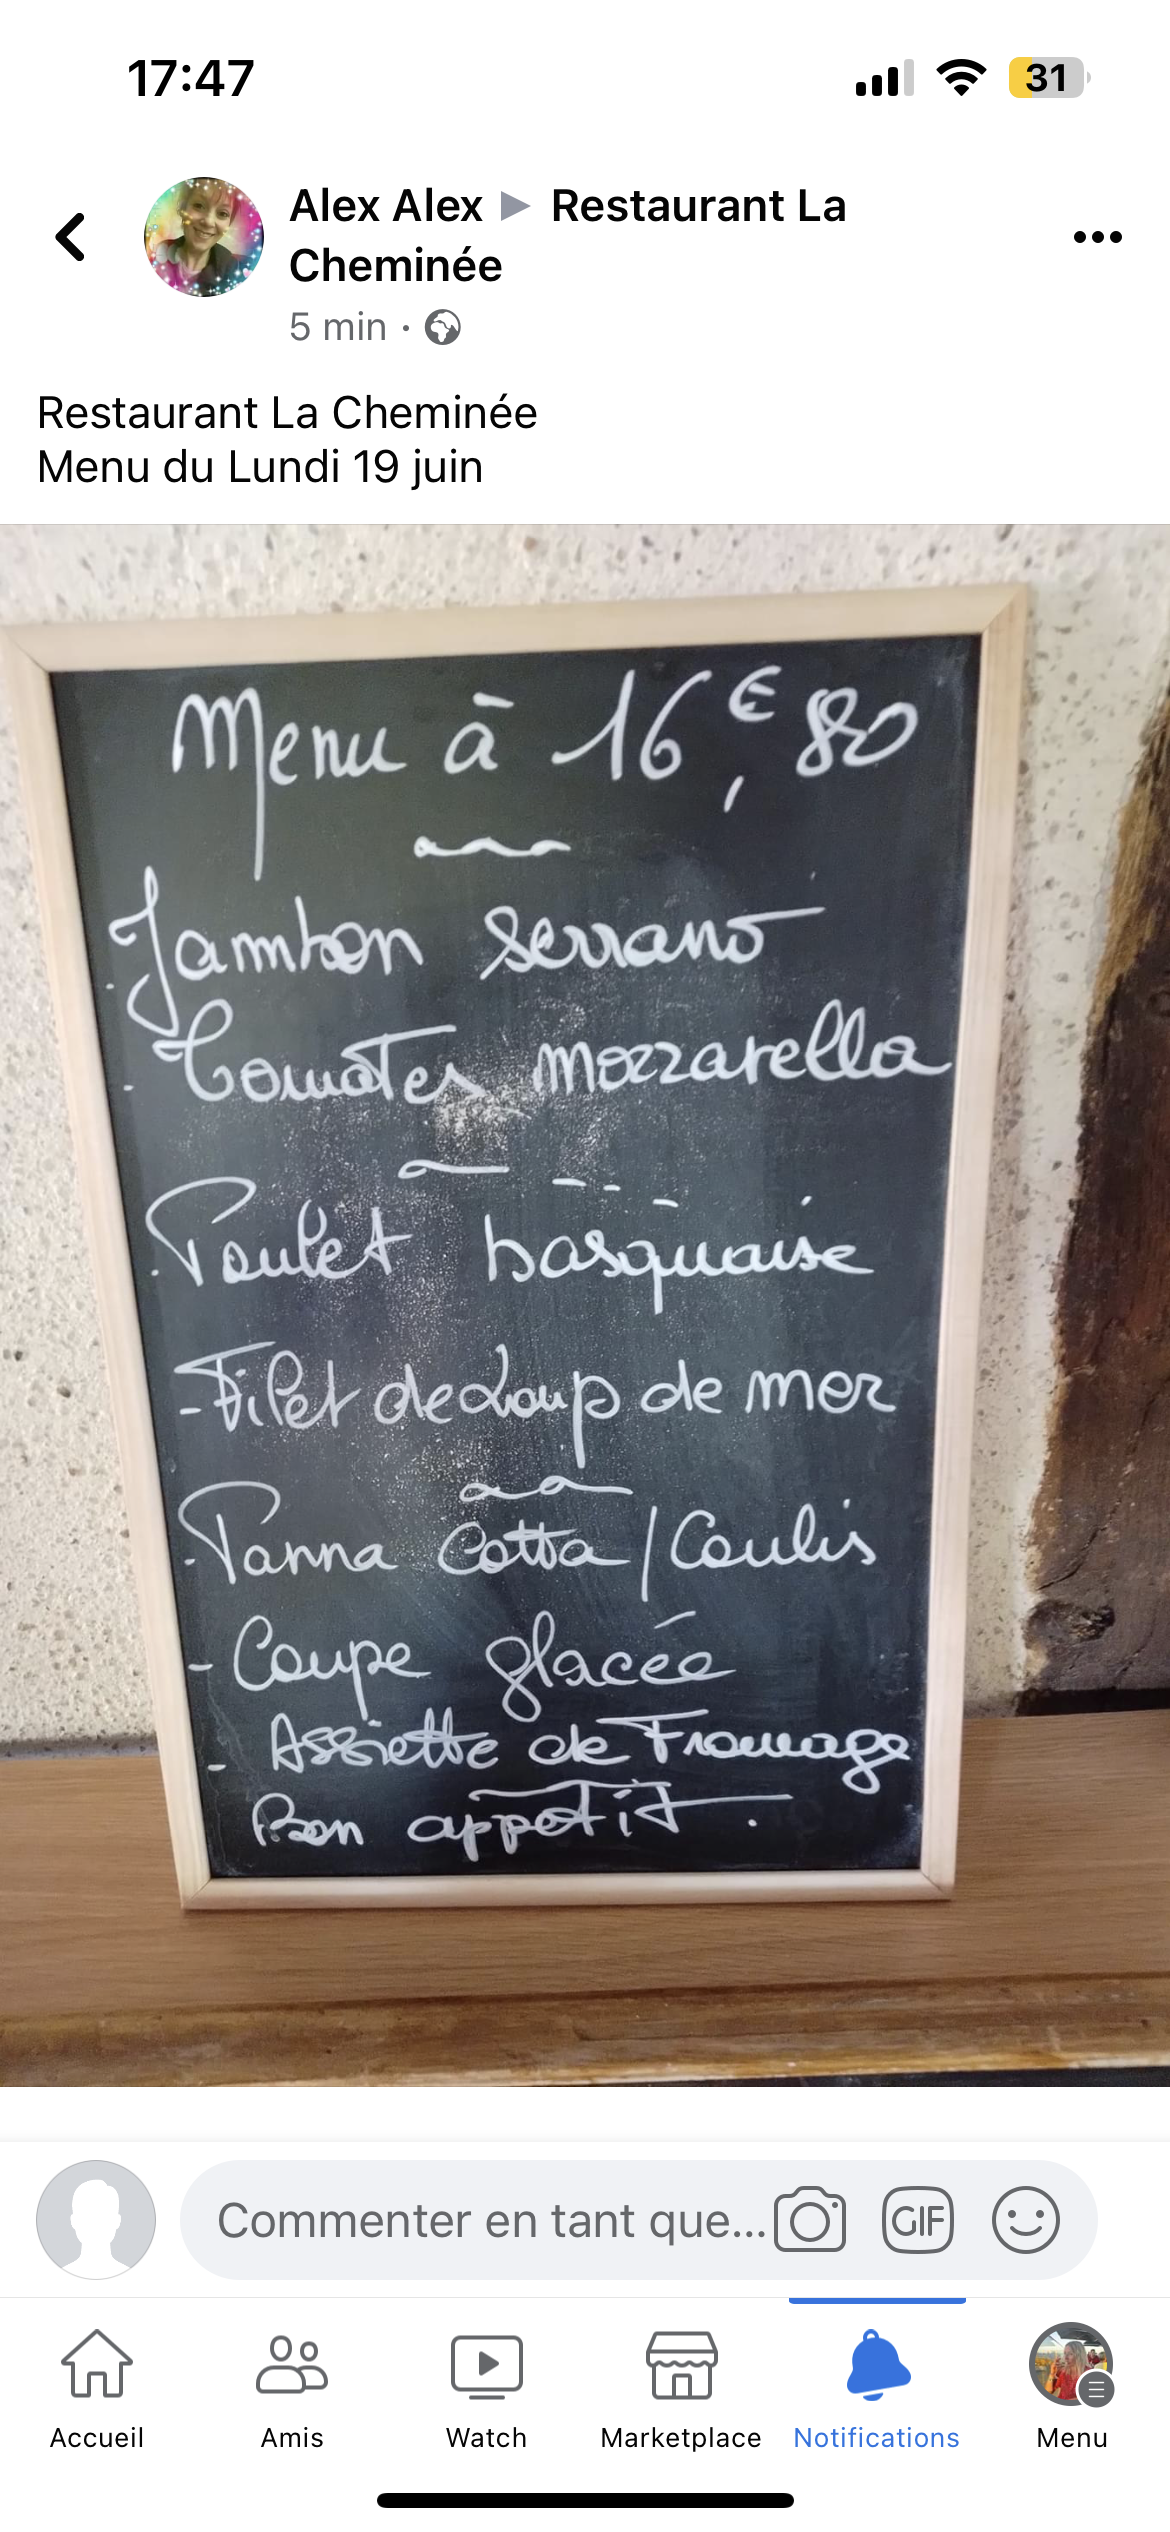 17:47
31
Alex Alex ▶ Restaurant La
Cheminée
5 min ·
Restaurant La Cheminée
Menu du Lundi 19 juin
Menu à 16€,80
- Jambon serrano
- Tomates mozzarella
- Poulet basquaise
- Filet de Loup de mer
- Panna Cotta / Coulis
- Coupe glacée
- Assiette de Fromage
Bon appétit.
Commenter en tant que...
GIF
Accueil
Amis
Watch
Marketplace
Notifications
Menu